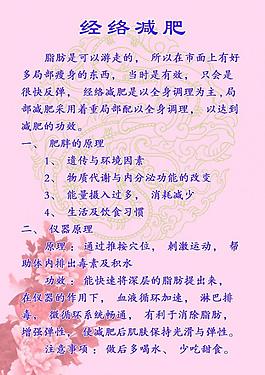 经络减肥
脂肪是可以游走的， 所以在市面上有好
多局部瘦身的东西， 当时是有效， 只会是
很快反弹， 经络减肥是以全身调理为主，局
部减肥采用着重局部配以全身调理， 以达到
减肥的功效。
一、 肥胖的原理
1、 遗传与环境因素
2、 物质代谢与内分泌功能的改变
3、 能量摄入过多， 消耗减少
4、 生活及饮食习惯
二、 仪器原理
原理：通过推按穴位， 刺激运动， 帮
助体内排出毒素及积水
功效：能快速将深层的脂肪提出来，
在仪器的作用下， 血液循环加速， 淋巴排
毒、 微循环系统畅通， 有利于消除脂肪，
增强弹性， 使减肥后肌肤保持光滑与弹性。
注意事项：做后多喝水、 少吃甜食。